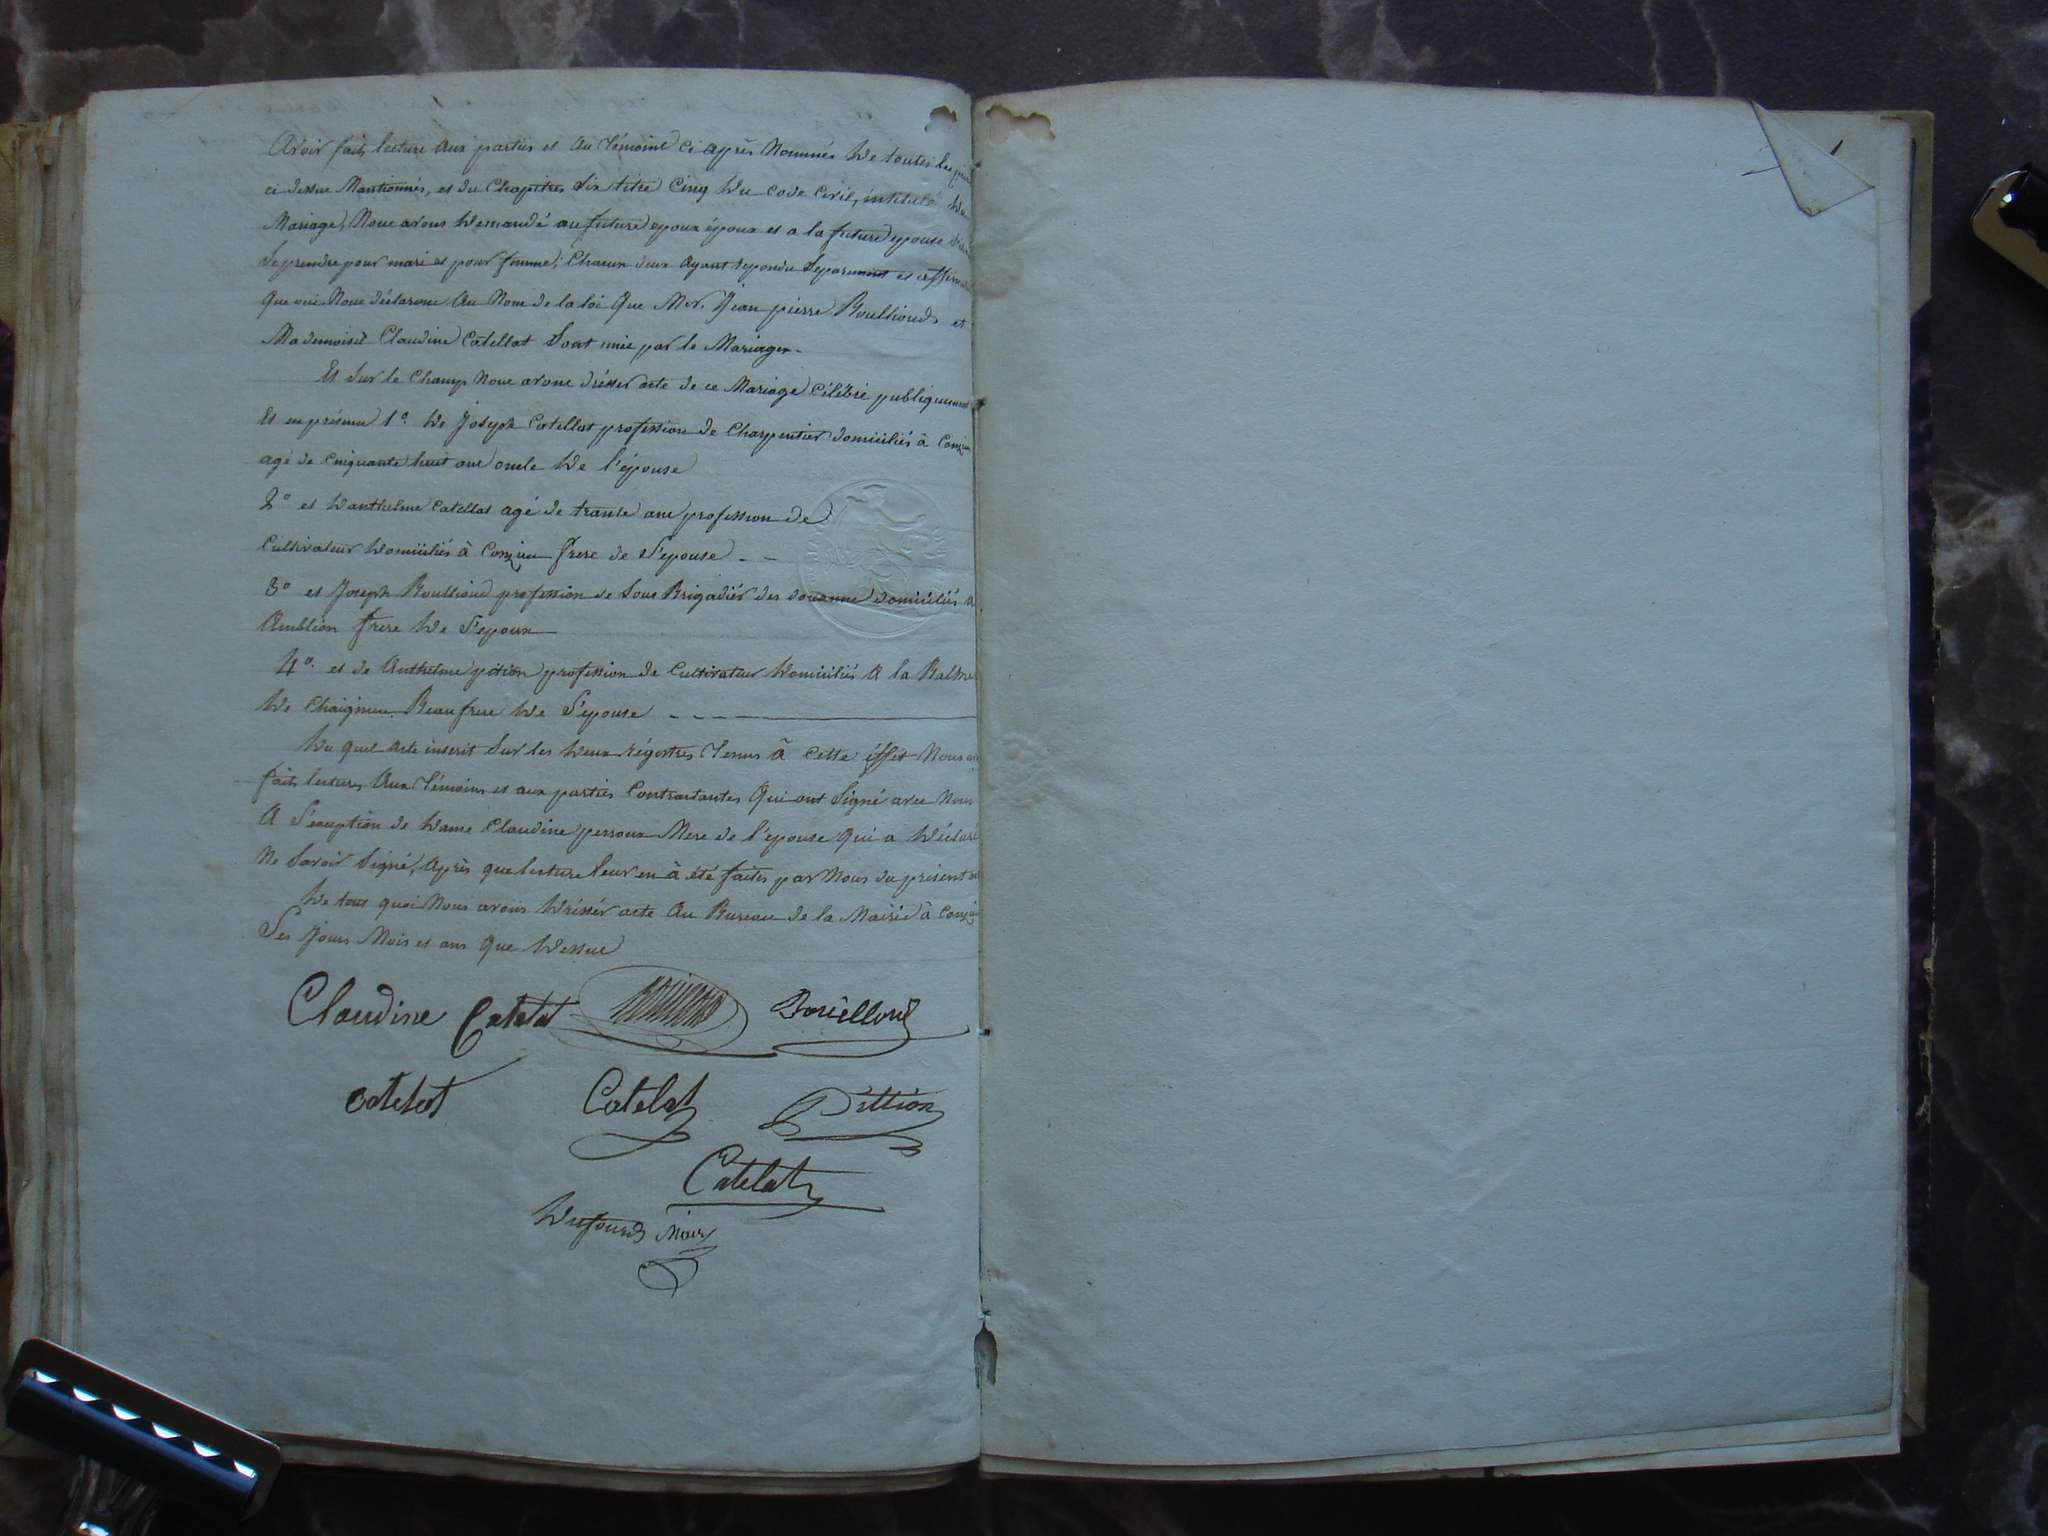 Avoir fait lecture aux parties et au témoins ci après Nommés De toutes les
ci dessue Mantionnés, et du Chapitres Six titre Cinq Du Code Civil, intitulé Du
Mariage, Noue avons Demandé au future epoux époux et a la future epouse
Se prendre pour mari et pour femme, Chacun deux Ayant repondu Separement et affirma
Que oui Noue déclarons Au Nom de la loi Que Mr. Jean pierre Roulliond et
Mademoisel Claudine Catellat Sont unie par le Mariage.
Et Sur le Champ Noue avone drésser acte de ce Mariage Célébré publiquement
Et en présence 1o. De Joseph Catellat profession de Charpentier domiciliés à Conzieu
agé de Cinquante huit ans oncle De l'épouse
2o et Danthelme Catellat agé de trante ans profession de
Cultivateur Domiciliés à Conzieu frere de L'epouse
3o et Joseph Roulliond profession de Sous Brigadiér des douanne domiciliés a
Amblion frere De L'epoux
4o. et de Anthelme pition profession de Cultivateur Domiciliés A la Balme
De Chaignieu Beaufrere De L'epouse
Du quel Acte inscrit Sur les Deux régistres Tenus à Cette éffet Nous
fait lectures Aux Témoins et aux parties Contractantes Qui ont Signé avec Nous
A L'exception de Dame Claudine perroux Mere de l'epouse Qui a Déclaré
Ne Savoir Signé, Après que lecture leur en à été faites par Nous du présent
De tout quoi Nous avons Drésser acte Au Bureau de la Mairie à Conzieu
Les Jours Mois et ans Que Dessue
Claudine Catelat Rouilloud
Catelat Catelat Pittion
Catelat
Dufour Maire